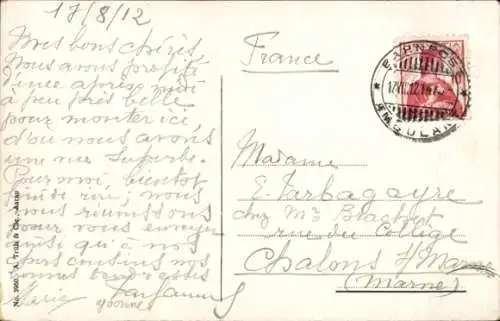 17/8/12
Mes bons chéris
Nous avons profité
d'une après midi
à peu près belle
pour monter ici
d'où nous avons
une vue superbe.
Pour moi, bientôt
fini de rire; nous
nous réunissons
pour vous envoyer
ainsi qu'à nos
bons cousins nos
bonnes tendresses
Marie
Yvonne
No. 3960. A. Trüb & Cie., Aarau
France
17.VIII.12
AMBULANT
Madame
E. Tarbagayre
chez Mr Brachet
rue du Collège
Chalons s/ Marne
(Marne)